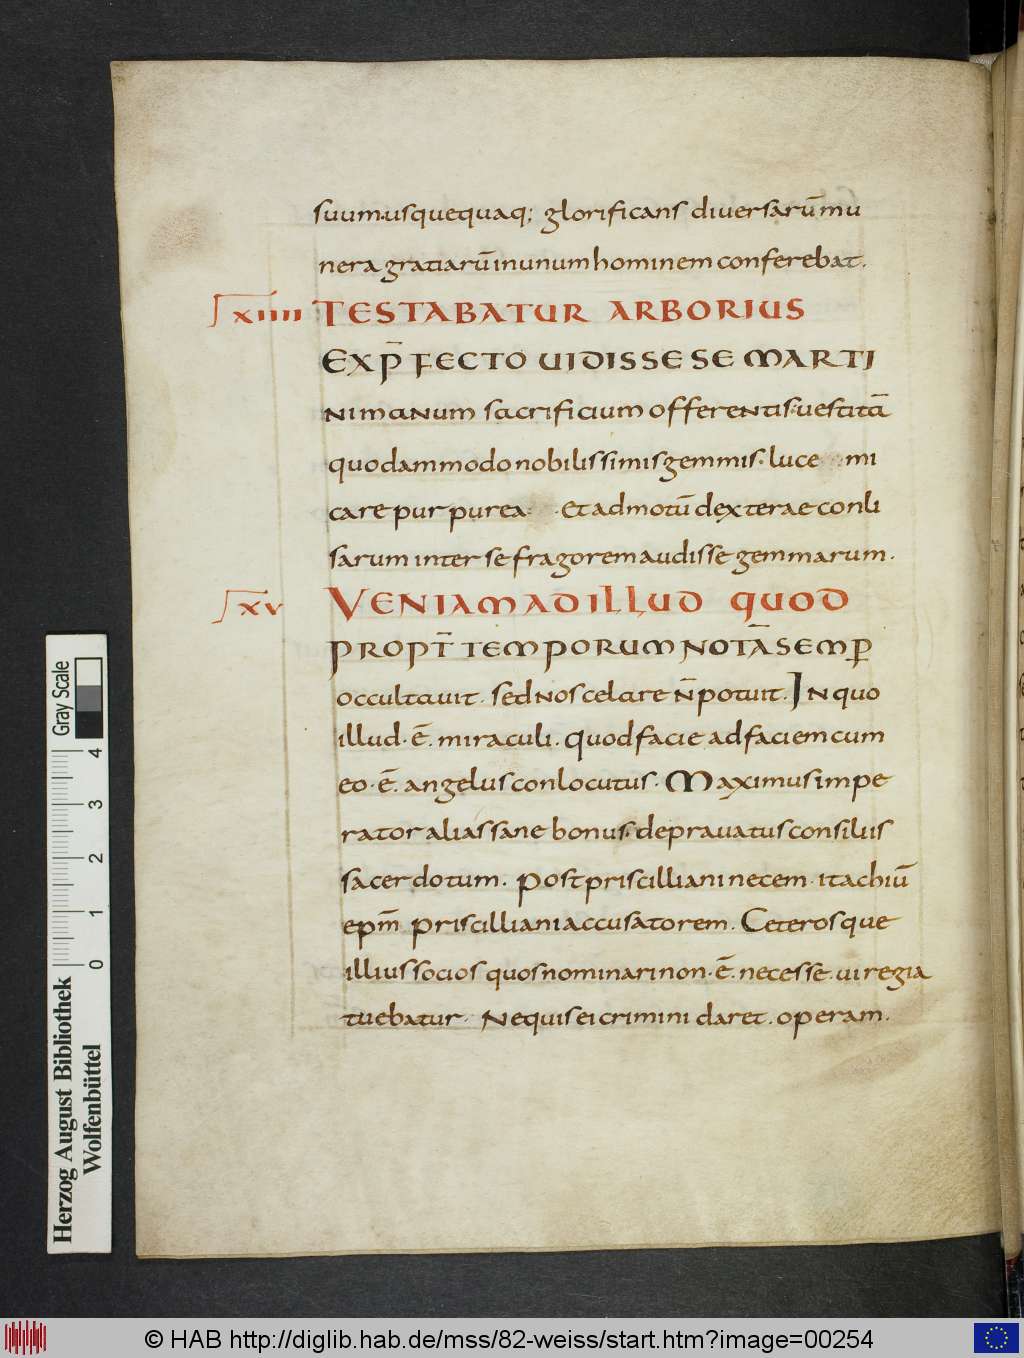 suum usquequaq; glorificans diversarū mu
nera gratiarū in unum hominem conferebat.
XIIII TESTABATUR ARBORIUS
EX P̄FECTO UIDISSE SE MARTI
NI manum sacrificium offerentis. uestitā
quodammodo nobilissimis gemmis. luce mi
care purpurea. Et ad motū dexterae conli
sarum inter se fragorem audisse gemmarum.
XV VENIAM AD ILLUD QUOD
PROPT̄ TEMPORUM NOTĀ SEMꝑ
occultauit. sed nos celare n̄ potuit. In quo
illud. ē. miraculi. quod facie ad faciem cum
eo. ē. angelus conlocutus. Maximus impe
rator alias sane bonus. depravatus consiliis
sacerdotum. Post priscilliani necem. itachiū
epm̄ priscilliani accusatorem. Ceterosque
illius socios quos nominari non. ē. necesse. ui regia
tuebatur. Ne quis ei crimini daret. operam.
Herzog August Bibliothek
Wolfenbüttel
Gray Scale
0 1 2 3 4
© HAB http://diglib.hab.de/mss/82-weiss/start.htm?image=00254